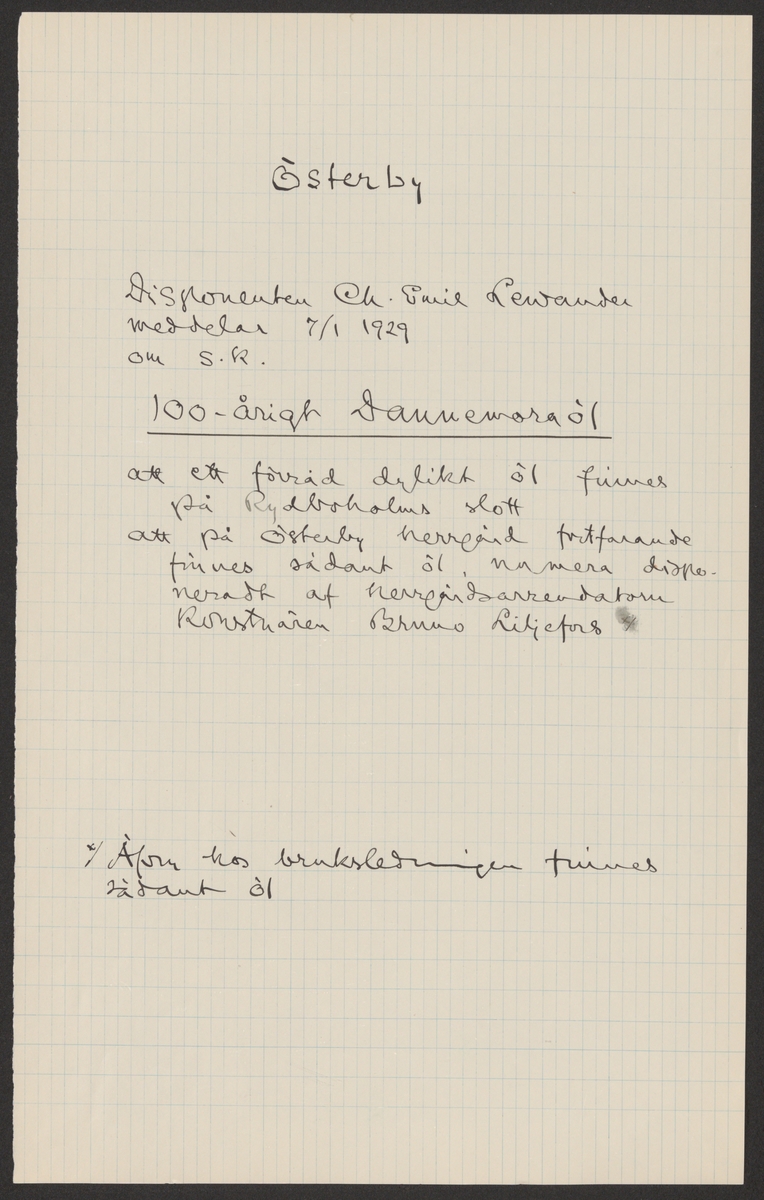 Österby
Disponenten Ch. Emil Lewander
meddelar 7/1 1929
om s.k.
100-årigt Dannemoraöl
att ett förråd dylikt öl finnes
på Rydboholms slott
att på Österby herrgård fortfarande
finnes sådant öl, numera dispo-
neradt af herrgårdsarrendatorn
Konstnären Bruno Liljefors x/
x/ Äfven hos bruksledningen finnes
sådant öl